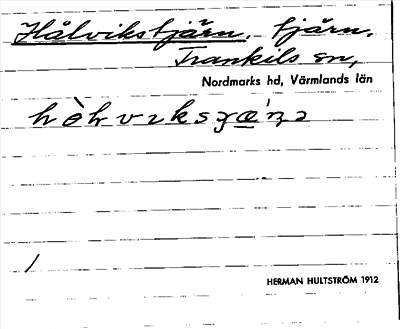 Hålvikstjärn, tjärn,
Trankils sn,
Nordmarks hd, Värmlands län
/
HERMAN HULTSTRÖM 1912